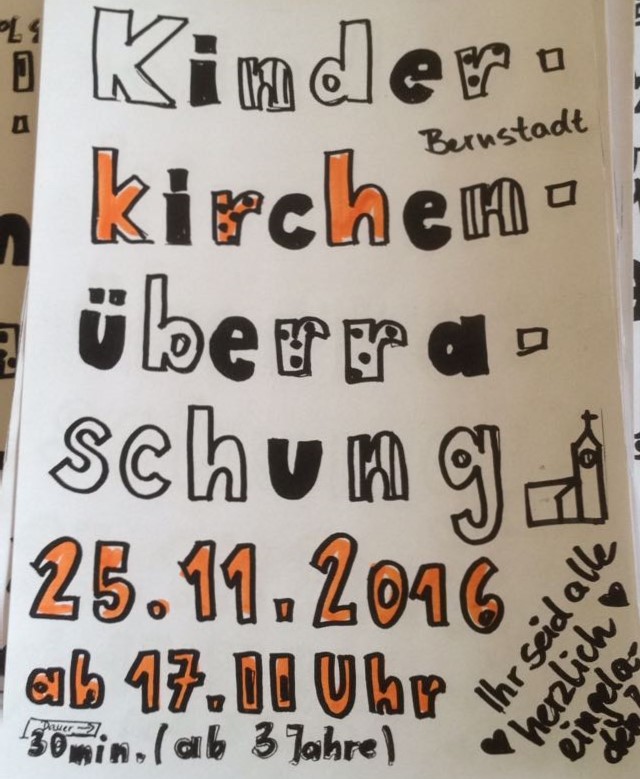 Kinder-
Bernstadt
kirchen-
überra-
schung
25.11.2016
ab 17.00 Uhr
Dauer →
30min. (ab 3 Jahre)
Ihr seid alle
herzlich
eingela-
den